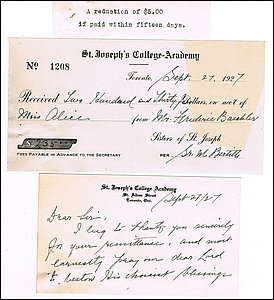 A reduction of $5.00
if paid within fifteen days.
St. Joseph's College-Academy
No 1208
Toronto, Sept. 27, 1927
Received Two Hundred and Thirty Dollars, on acct of
Miss Alice from Mr. Frederic
Sisters of St. Joseph
$ 235.00
FEES PAYABLE IN ADVANCE TO THE SECRETARY
PER Sr. M. Bertille
St. Joseph's College Academy
St. Alban Street
Toronto, Ont.
Sept 27/27
Dear Sir,
I beg to thank you sincerely
for your remittance, and most
earnestly pray our dear Lord
to bestow His choicest blessings